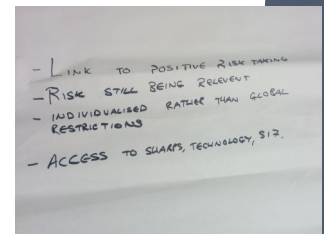 - LINK TO POSITIVE RISK TAKING
- RISK STILL BEING RELEVENT
- INDIVIDUALISED RATHER THAN GLOBAL
RESTRICTIONS
- ACCESS TO SHARPS, TECHNOLOGY, S17.